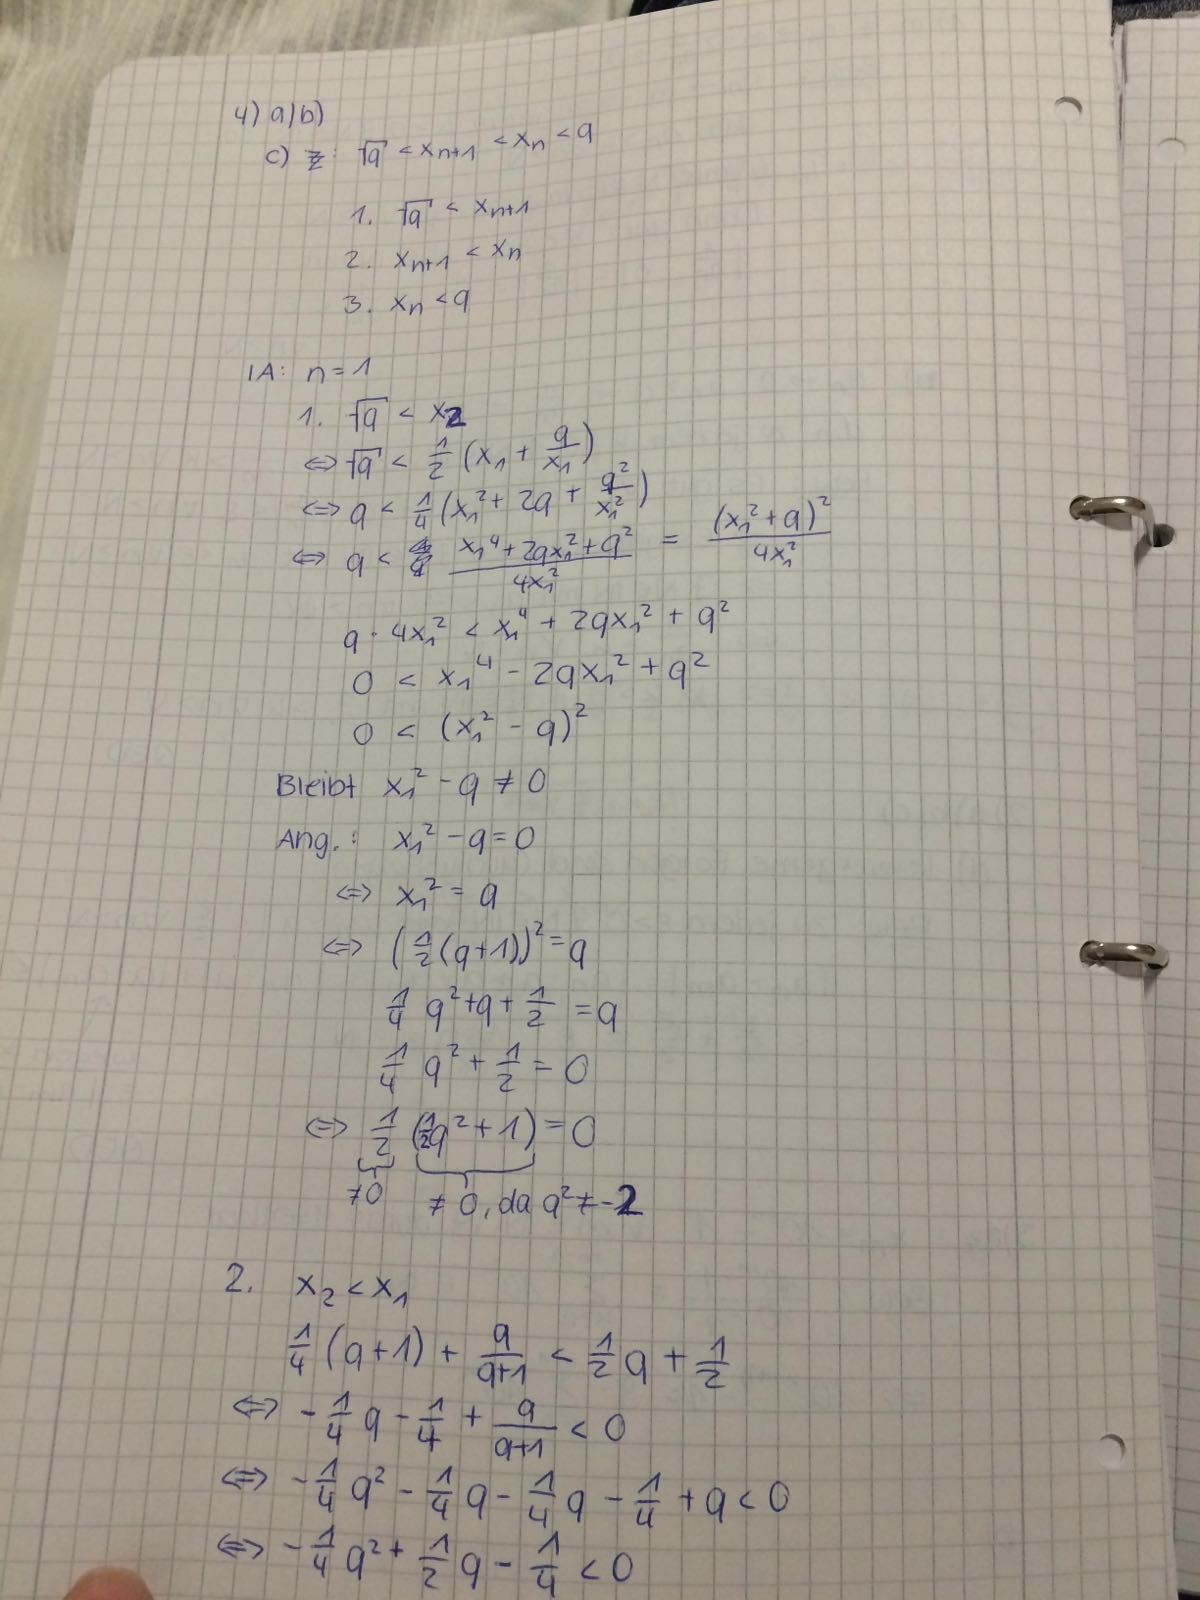 4) a)b)
c) z: √a < xₙ₊₁ < xₙ < a
1. √a < xₙ₊₁
2. xₙ₊₁ < xₙ
3. xₙ < a
IA: n = 1
1. √a < x₂
⇔ √a < 1/2 (x₁ + a/x₁)
⇔ a < 1/4 (x₁² + 2a + a²/x₁²)
⇔ a < (x₁⁴ + 2ax₁² + a²)/(4x₁²) = (x₁² + a)²/(4x₁²)
a · 4x₁² < x₁⁴ + 2ax₁² + a²
0 < x₁⁴ - 2ax₁² + a²
0 < (x₁² - a)²
Bleibt x₁² - a ≠ 0
Ang.: x₁² - a = 0
⇔ x₁² = a
⇔ (1/2 (a+1))² = a
1/4 a² + a + 1/2 = a
1/4 a² + 1/2 = 0
⇔ 1/2 (1/2 a² + 1) = 0
≠0 ≠ 0, da a² ≠ -2
2. x₂ < x₁
1/4 (a+1) + a/(a+1) < 1/2 a + 1/2
⇔ -1/4 a - 1/4 + a/(a+1) < 0
⇔ -1/4 a² - 1/4 a - 1/4 a - 1/4 + a < 0
⇔ -1/4 a² + 1/2 a - 1/4 < 0